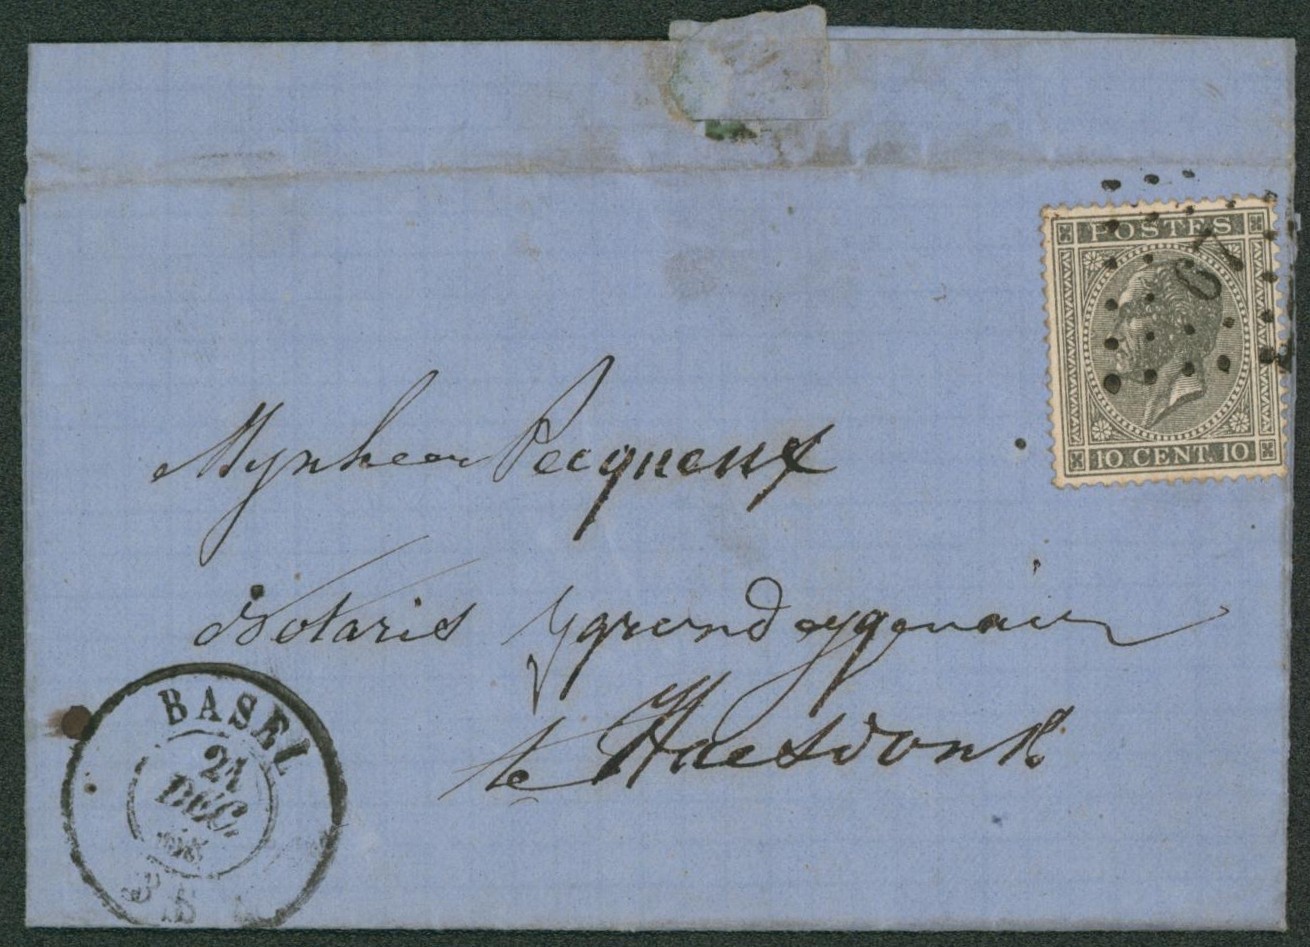 POSTES
67
10 CENT. 10
Mynheer Pecqueux
Notaris
te Haesdonk
BASEL
21
DEC.
68